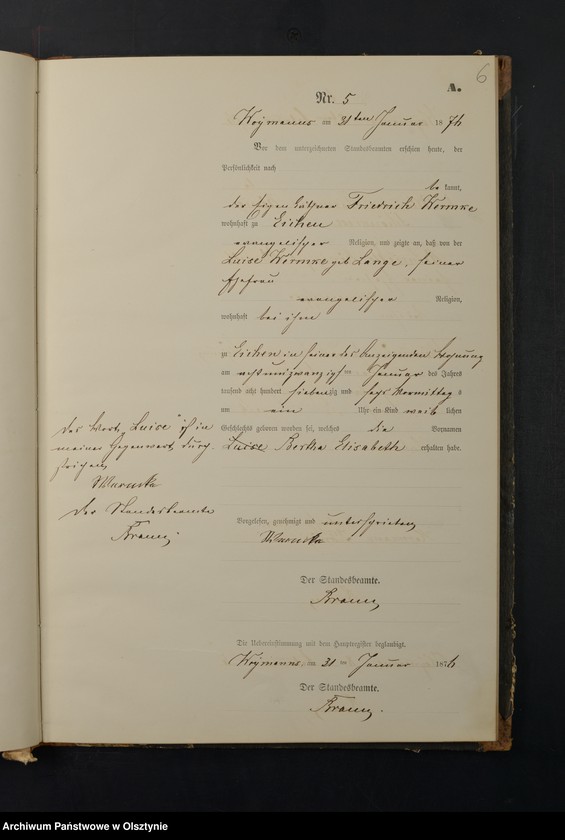 6
A.
Nr. 5
am 31ten Januar 1876
Vor dem unterzeichneten Standesbeamten erschien heute, der
Persönlichkeit nach
be kannt,
der Eigenkäthner Friedrich
wohnhaft zu Eichen
evangelischer Religion, und zeigte an, daß von der
Luise geb Lange, seiner
Ehefrau
evangelischer Religion,
wohnhaft bei ihm
zu Eichen in seiner des Anzeigenden Wohnung
am achtundzwanzigsten Januar des Jahres
tausend acht hundert siebenzig und sechs Vormittags
um ein Uhr ein Kind weib lichen
Geschlechts geboren worden sei, welches die Vornamen
Luise Bertha Elisabeth erhalten habe.
Das Wort „Luise" ist in
meiner Gegenwart durch-
strichen
Der Standesbeamte
Vorgelesen, genehmigt und unterschrieben
Der Standesbeamte.
Die Uebereinstimmung mit dem Hauptregister beglaubigt.
am 31ten Januar 1876
Der Standesbeamte.
Archiwum Państwowe w Olsztynie